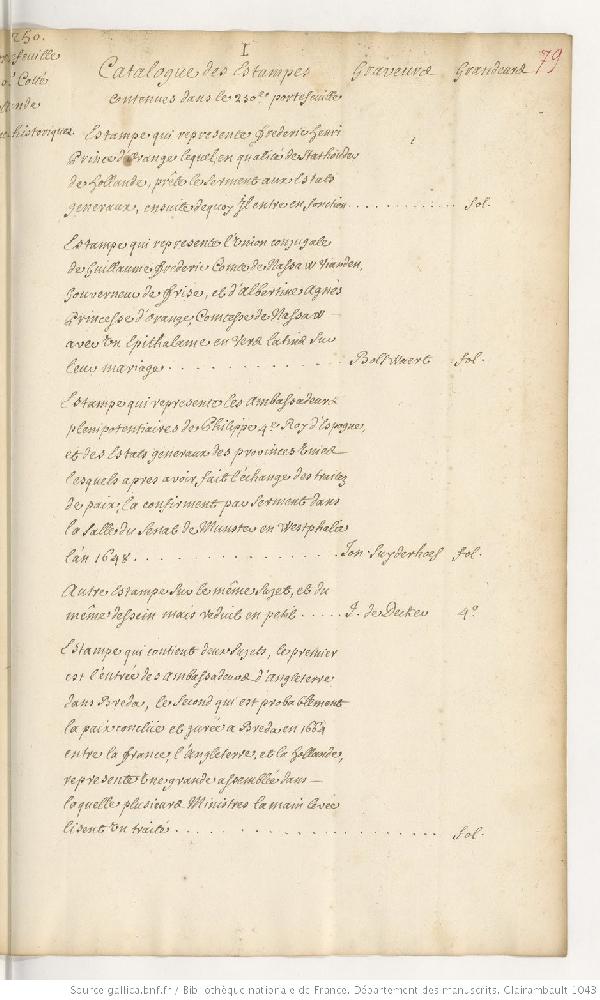 250.
Portefeuille
Cotté
historiques
1
79
Catalogue des Estampes Graveurs Grandeurs
contenues dans le 250.e portefeuille
Estampe qui represente Frederic Henri
Prince d'Orange lequel en qualité de Stathoulde
de Hollande, prête le serment aux Estats
generaux, ensuite dequoy Il entre en fonction . . . . . . . . . . . fol.
Estampe qui represente l'Union conjugale
de Guillaume Frederic Comte de Nassaw Vianden,
Gouverneur de Frise, et d'Albertine Agnés
Princesse d'Orange, Comtesse de Nassaw
avec un Epithalame en Vers latins sur
leur mariage . . . . . . . . . . . . Bolswaert fol.
Estampe qui represente les Ambassadeurs
plenipotentiaires de Philippe 4.e Roy d'Espagne,
et des Estats generaux des provinces Unies
lesquels apres avoir, fait l'échange des traitez
de paix, la confirment par serment dans
la salle du Senat de Munster en Westphalie
l'an 1648 . . . . . . . . . . . . . . Jon Suyderhoef fol.
Autre Estampe sur le même Sujet, et du
même dessein mais reduit en petit . . . . . J. de Decker 4.o
Estampe qui contient deux Sujets, le premier
est l'entrée des ambassadeurs d'Angleterre
dans Breda, le second qui est probablement
la paix conclüe et jurée a Breda en 1664
entre la France, l'Angleterre, et la Hollande,
represente Une grande assemblée dans
laquelle plusieurs Ministres la main levée
lisent Un traité . . . . . . . . . . . . . . . . . . . . . . fol.
Source gallica.bnf.fr / Bibliothèque nationale de France. Département des manuscrits. Clairambault 1043